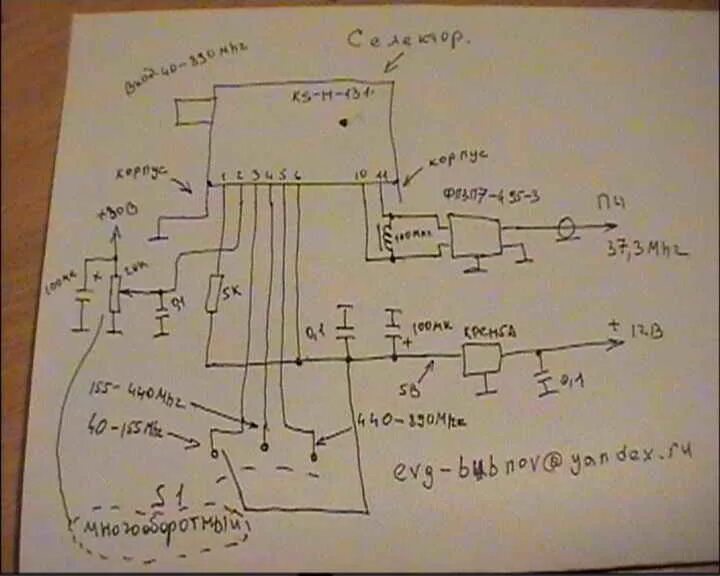 Селектор.
Вход 40-890Mhz
KS-H-131
корпус
1 2 3 4 5 6 10 11
корпус
ФПЗП7-495-3
ПЧ
37,3Mhz
+30В
100мк
x
20к
0,1
5к
100мкг
0,1
100мк
+
КРЕН5А
+
12В
5В
0,1
155-440Mhz
40-155Mhz
440-890Mhz
S1
многооборотный
evg-bubnov@yandex.ru